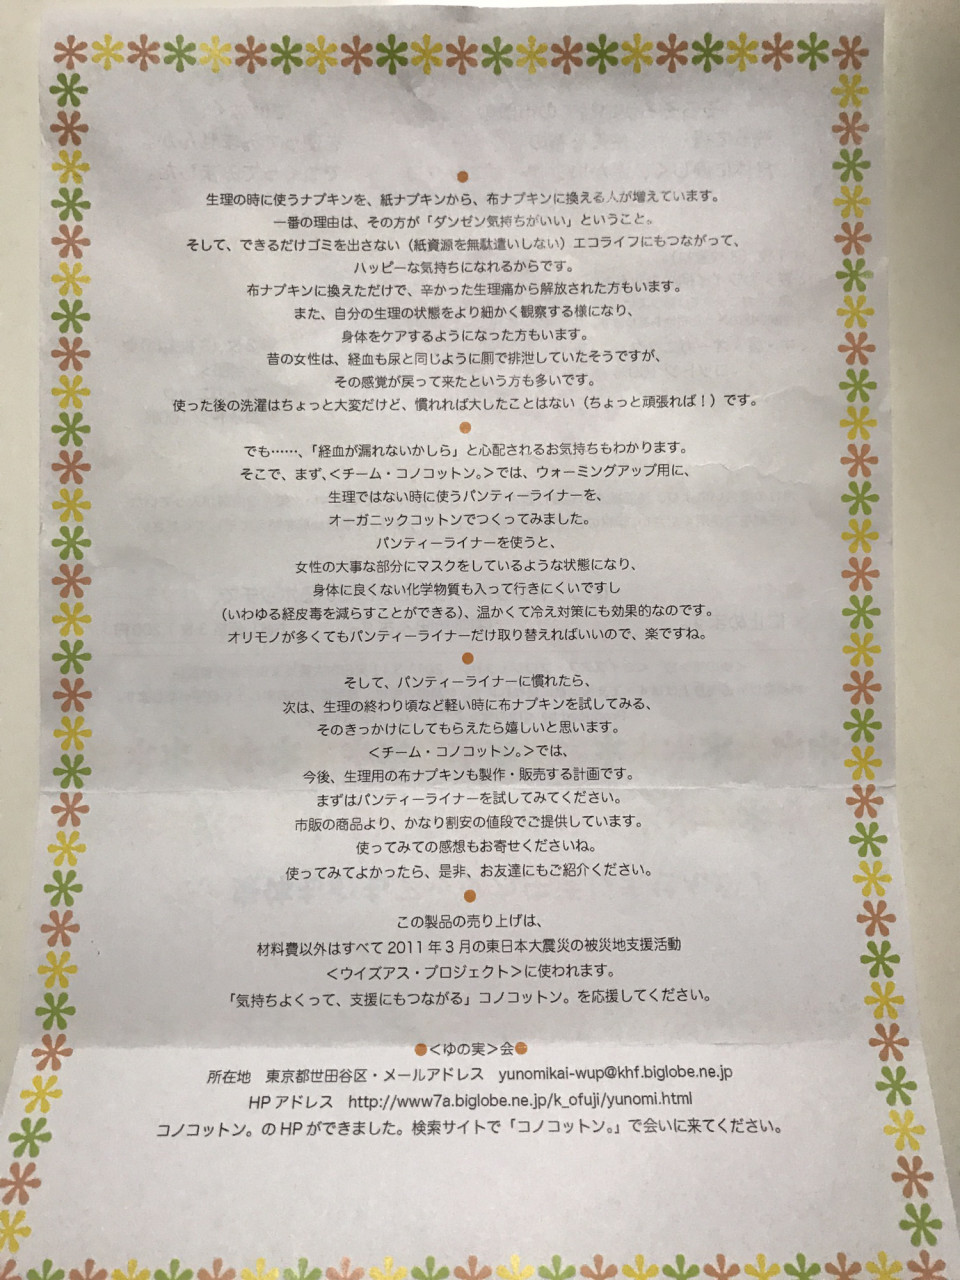 生理の時に使うナプキンを、紙ナプキンから、布ナプキンに換える人が増えています。
一番の理由は、その方が「ダンゼン気持ちがいい」ということ。
そして、できるだけゴミを出さない（紙資源を無駄遣いしない）エコライフにもつながって、
ハッピーな気持ちになれるからです。
布ナプキンに換えただけで、辛かった生理痛から解放された方もいます。
また、自分の生理の状態をより細かく観察する様になり、
身体をケアするようになった方もいます。
昔の女性は、経血も尿と同じように厠で排泄していたそうですが、
その感覚が戻って来たという方も多いです。
使った後の洗濯はちょっと大変だけど、慣れれば大したことはない（ちょっと頑張れば！）です。
でも……、「経血が漏れないかしら」と心配されるお気持ちもわかります。
そこで、まず、＜チーム・コノコットン。＞では、ウォーミングアップ用に、
生理ではない時に使うパンティーライナーを、
オーガニックコットンでつくってみました。
パンティーライナーを使うと、
女性の大事な部分にマスクをしているような状態になり、
身体に良くない化学物質も入って行きにくいですし
（いわゆる経皮毒を減らすことができる）、温かくて冷え対策にも効果的なのです。
オリモノが多くてもパンティーライナーだけ取り替えればいいので、楽ですね。
そして、パンティーライナーに慣れたら、
次は、生理の終わり頃など軽い時に布ナプキンを試してみる、
そのきっかけにしてもらえたら嬉しいと思います。
＜チーム・コノコットン。＞では、
今後、生理用の布ナプキンも製作・販売する計画です。
まずはパンティーライナーを試してみてください。
市販の商品より、かなり割安の値段でご提供しています。
使ってみての感想もお寄せくださいね。
使ってみてよかったら、是非、お友達にもご紹介ください。
この製品の売り上げは、
材料費以外はすべて2011年3月の東日本大震災の被災地支援活動
＜ウイズアス・プロジェクト＞に使われます。
「気持ちよくって、支援にもつながる」コノコットン。を応援してください。
●＜ゆの実＞会●
所在地　東京都世田谷区・メールアドレス　yunomikai-wup@khf.biglobe.ne.jp
HPアドレス　http://www7a.biglobe.ne.jp/k_ofuji/yunomi.html
コノコットン。のHPができました。検索サイトで「コノコットン。」で会いに来てください。